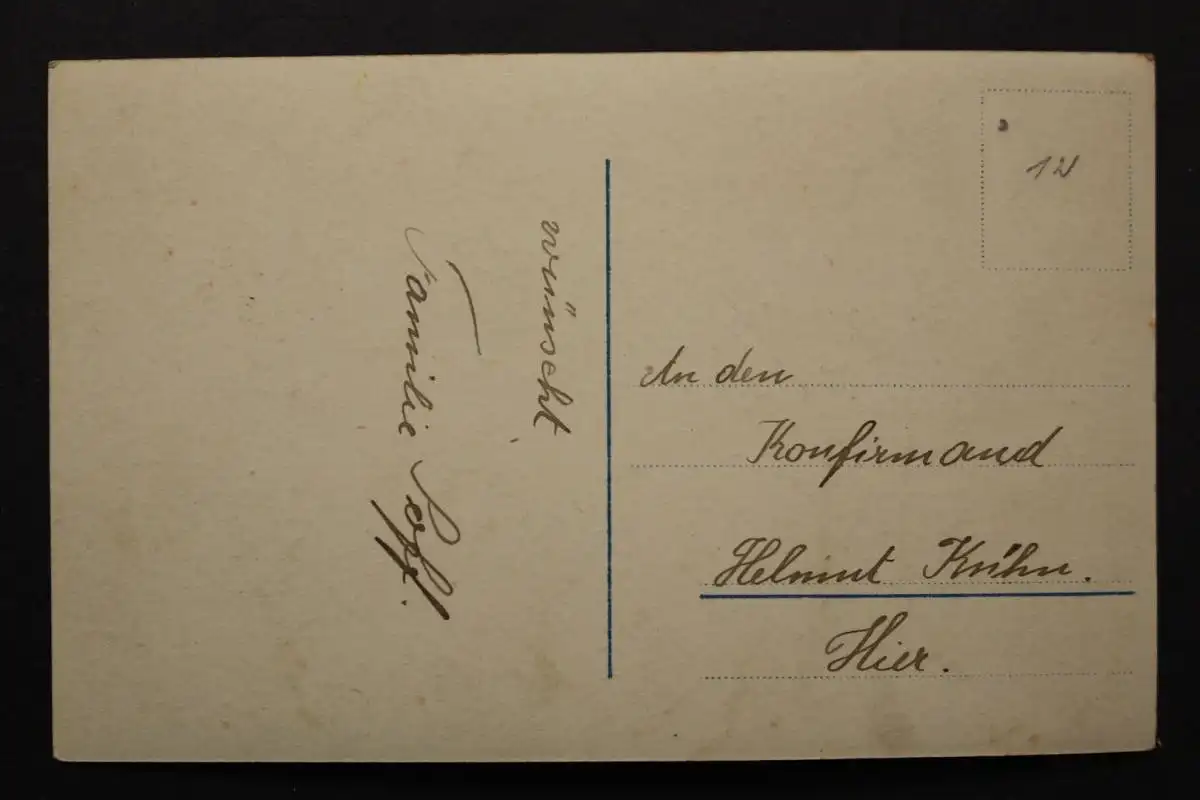 wünscht
Familie Poff.
12
An den
Konfirmand
Helmut Kühn.
Hier.